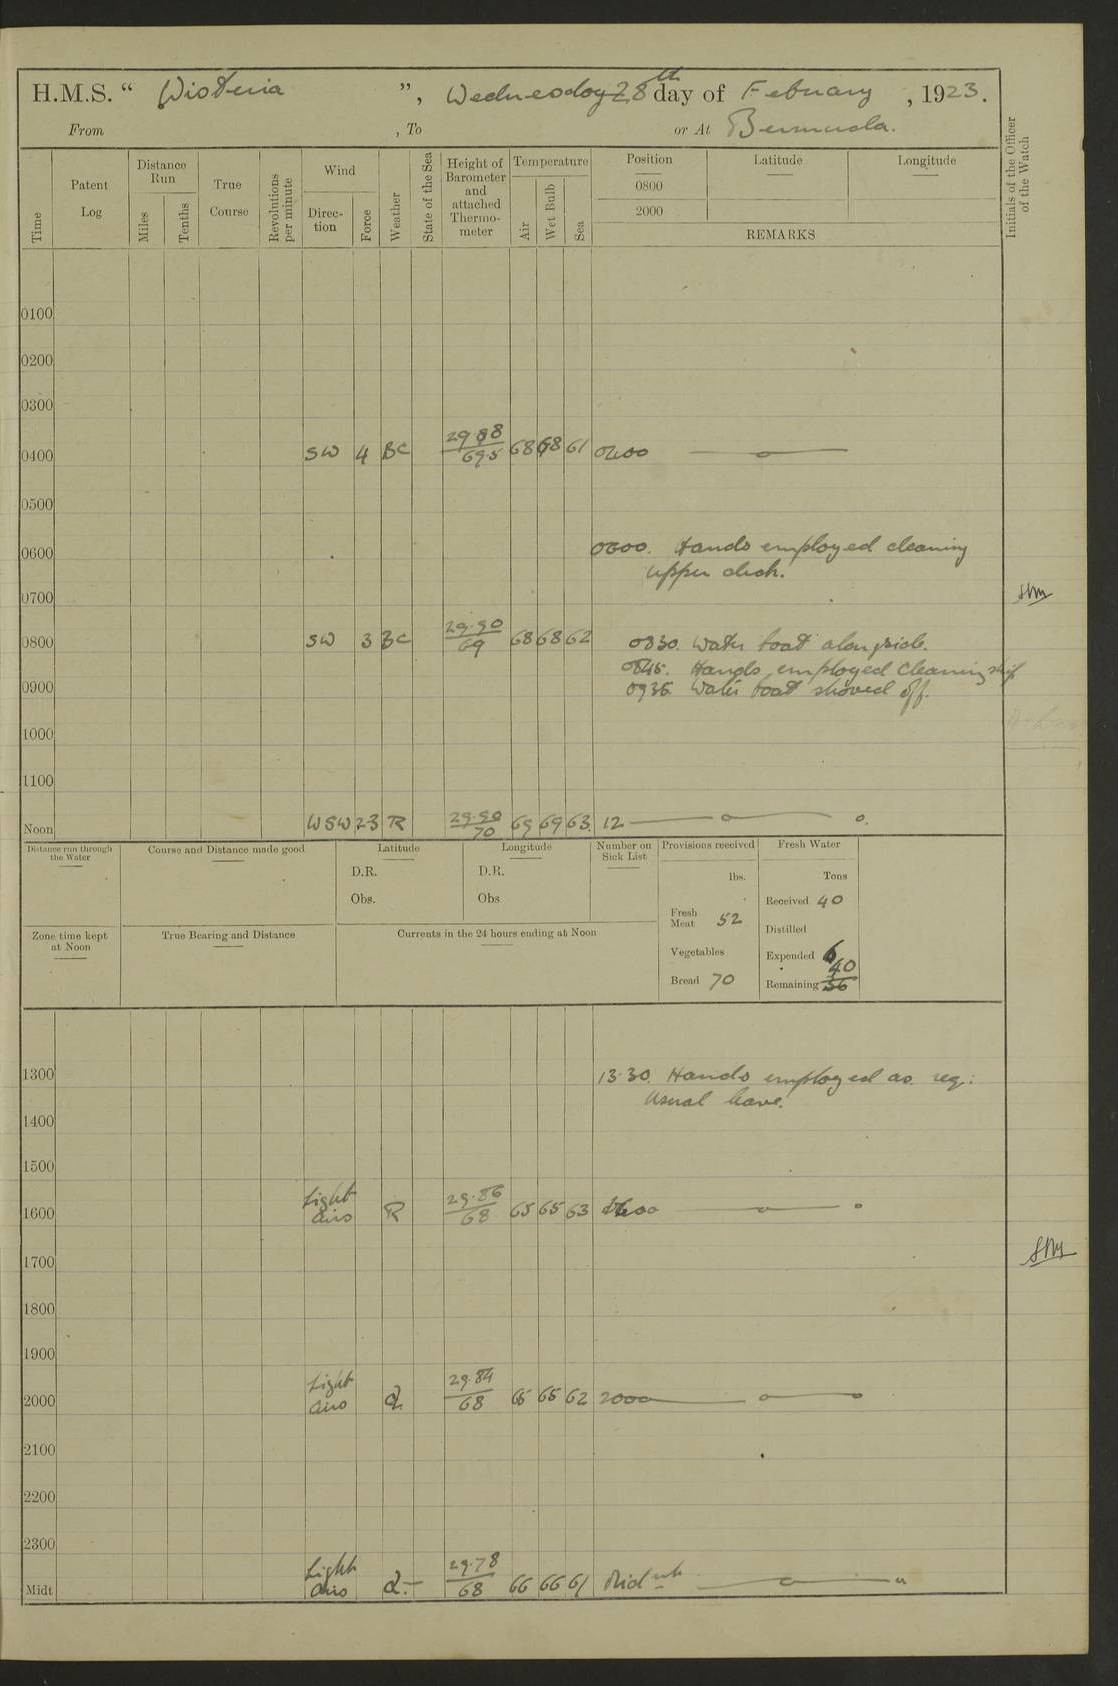 H.M.S. “ Wisteria ”, Wednesday 28th day of February , 1923.
From , To or At Bermuda.
Time
Patent Log
Distance Run
Miles
Tenths
True Course
Revolutions per minute
Wind
Direc- tion
Force
Weather
State of the Sea
Height of Barometer and attached Thermo- meter
Temperature
Air
Wet Bulb
Sea
Position Latitude Longitude
0800
2000
REMARKS
Initials of the Officer of the Watch
0100
0200
0300
0400 SW 4 BC 29.88 69.5 68 68 61 0400
0500
0600 0600. Hands employed cleaning
upper deck.
0700
0800 SW 3 BC 29.90 69 68 68 62 0830. Water boat alongside.
0845. Hands employed cleaning ship
0900 0935 Water boat shoved off.
1000
1100
Noon WSW 2-3 R 29.90 70 69 69 63 12
Distance run through the Water
Course and Distance made good
Latitude
D.R.
Obs.
Longitude
D.R.
Obs
Number on Sick List
Provisions received
lbs.
Fresh Meat 52
Vegetables
Bread 70
Fresh Water
Tons
Received 40
Distilled
Expended 6
Remaining 40
36
Zone time kept at Noon
True Bearing and Distance
Currents in the 24 hours ending at Noon
1300 13.30. Hands employed as req:
Usual leave.
1400
1500
1600 Light airs R 29.86 68 65 65 63 1600
1700
1800
1900
2000 Light airs 29.84 68 65 65 62 2000
2100
2200
2300
Midt Light airs 29.78 68 66 66 61